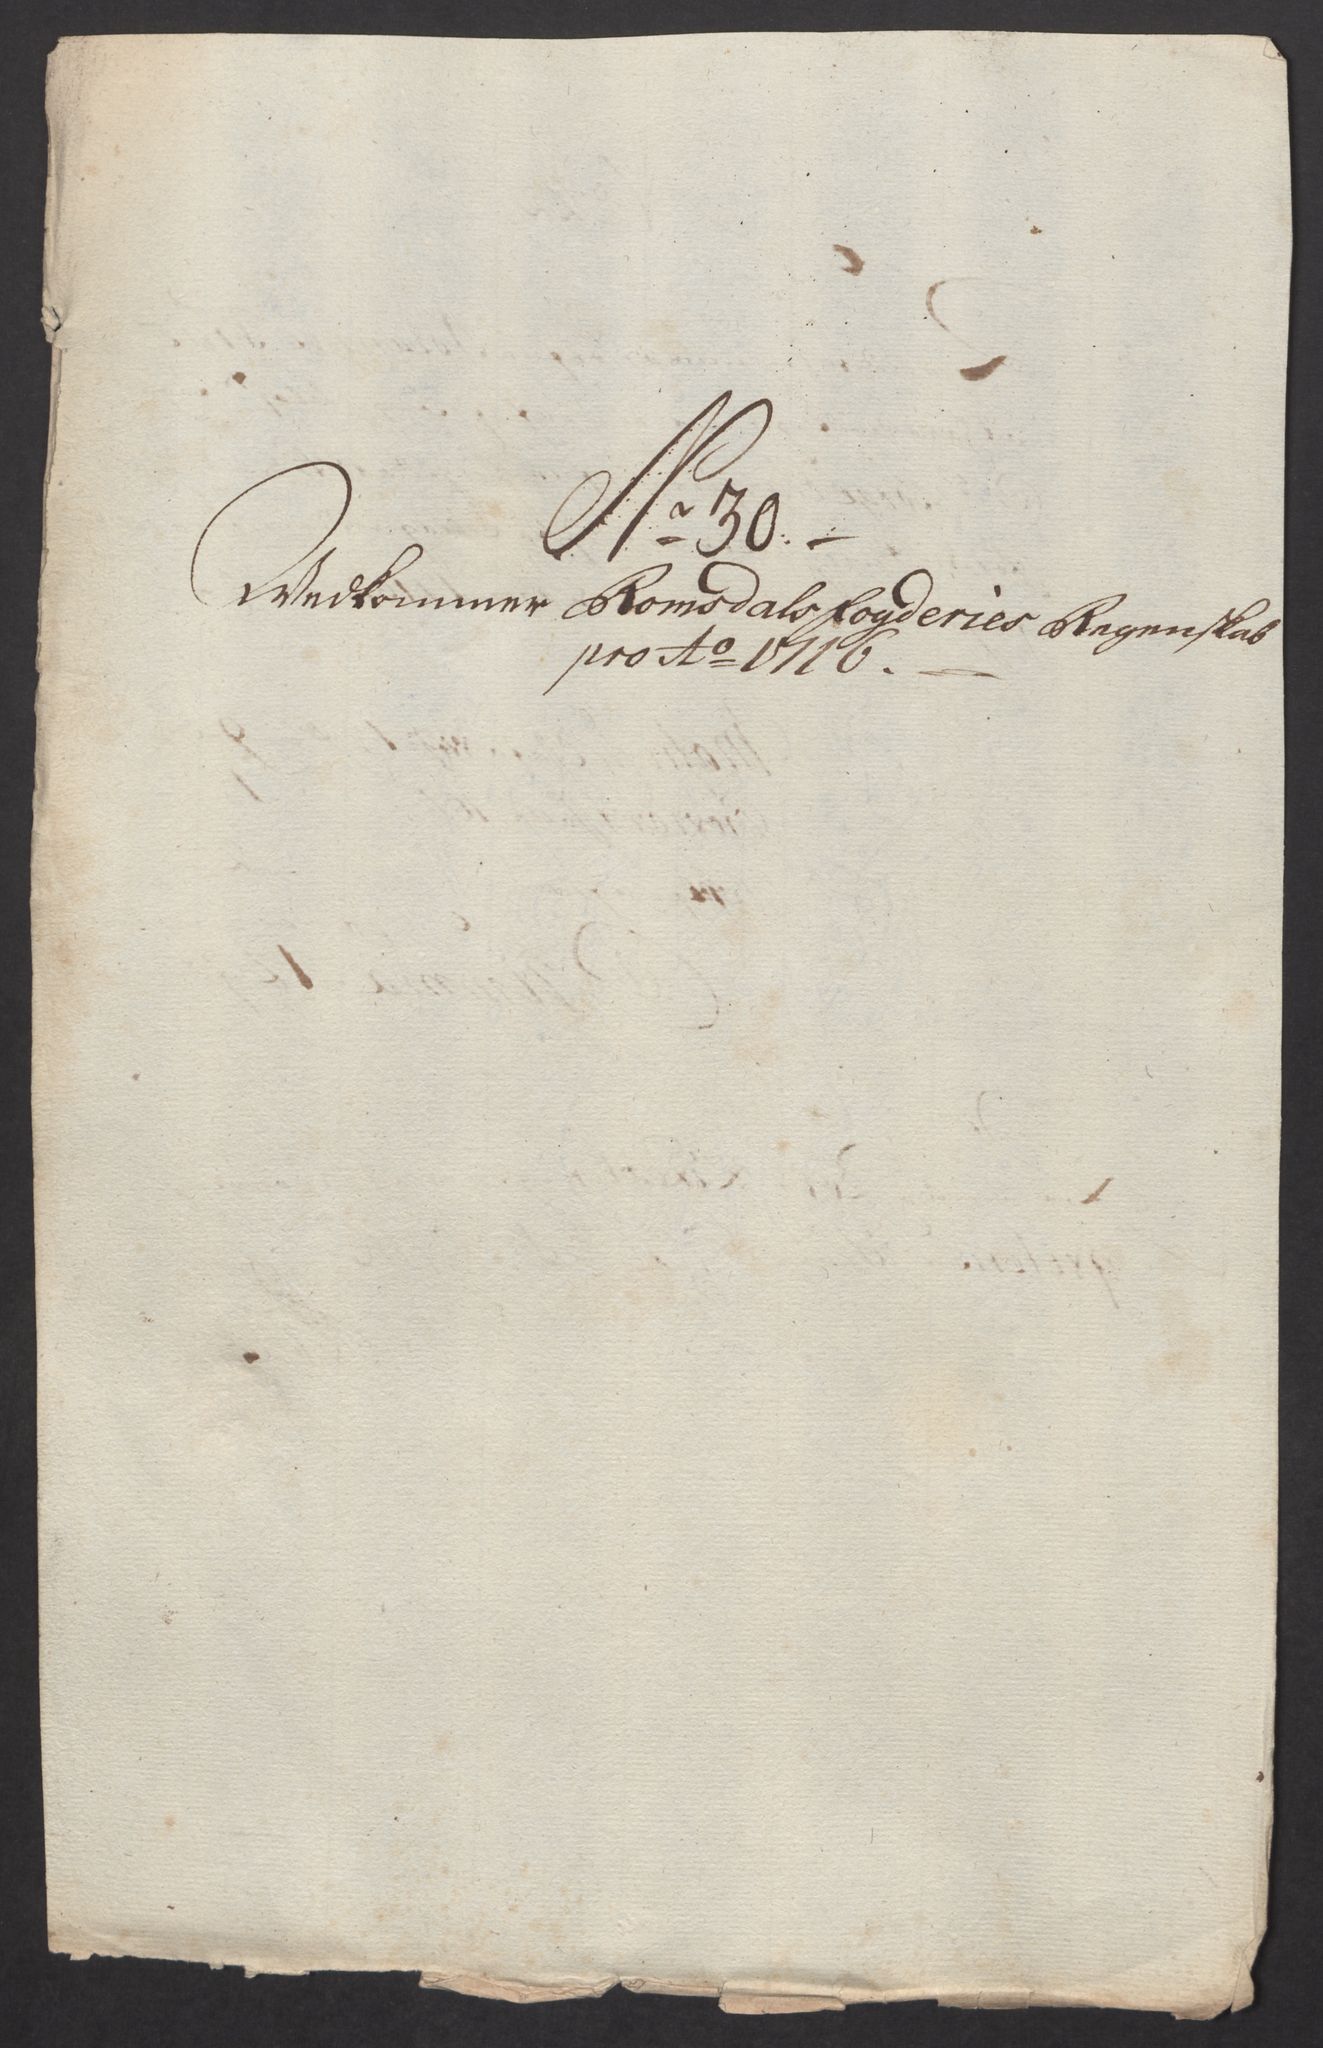 No 30.
Vedkommer Romsdals fogderies Regenskab
pro Ao 1716.